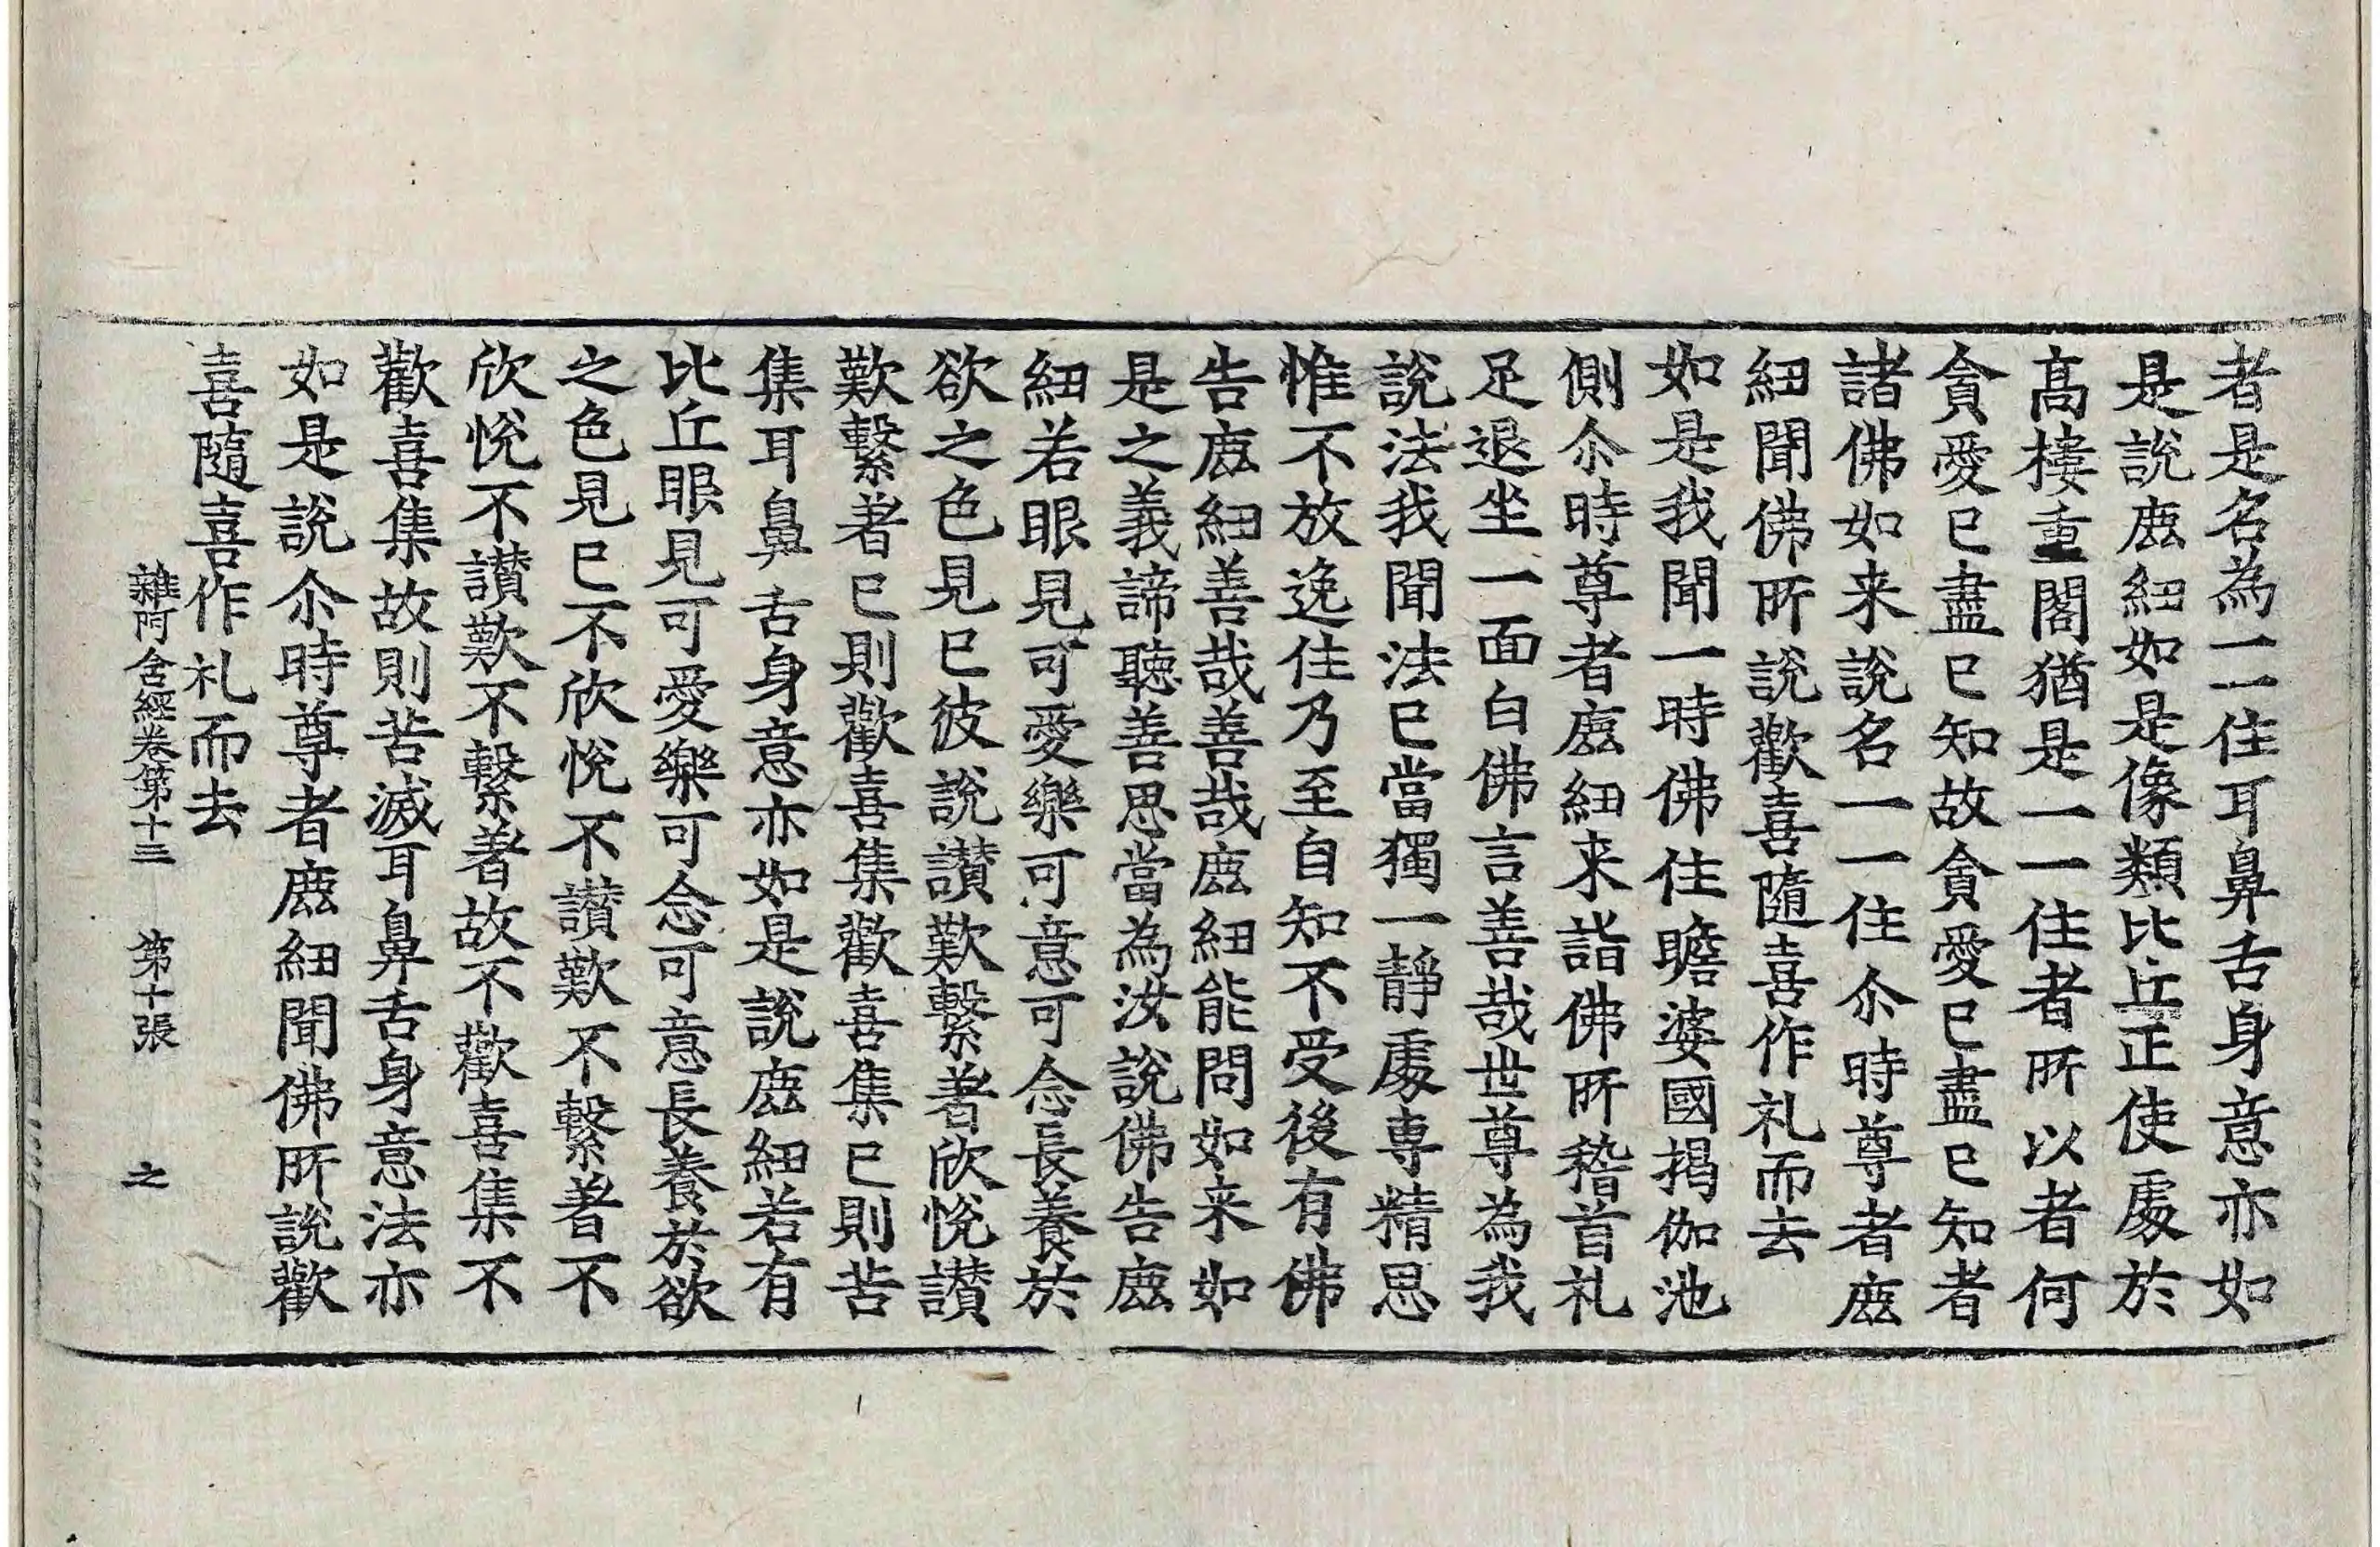 者是名為一一住耳鼻舌身意亦如
是說鹿紐如是像類比丘正使處於
高樓重閣猶是一一住者所以者何
貪愛已盡已知故貪愛已盡已知者
諸佛如来說名一一住尒時尊者鹿
紐聞佛所說歡喜隨喜作礼而去
如是我聞一時佛住瞻婆國揭伽池
側尒時尊者鹿紐来詣佛所稽首礼
足退坐一面白佛言善哉世尊為我
說法我聞法已當獨一靜處專精思
惟不放逸住乃至自知不受後有佛
告鹿紐善哉善哉鹿紐能問如来如
是之義諦聽善思當為汝說佛告鹿
紐若眼見可愛樂可意可念長養於
欲之色見已彼說讃歎繫著欣悅讃
歎繫著已則歡喜集歡喜集已則苦
集耳鼻舌身意亦如是說鹿紐若有
比丘眼見可愛樂可念可意長養於欲
之色見已不欣悅不讃歎不繫著不
欣悅不讃歎不繫著故不歡喜集不
歡喜集故則苦滅耳鼻舌身意法亦
如是說尒時尊者鹿紐聞佛所說歡
喜隨喜作礼而去
雜阿含經卷第十三 第十張 之